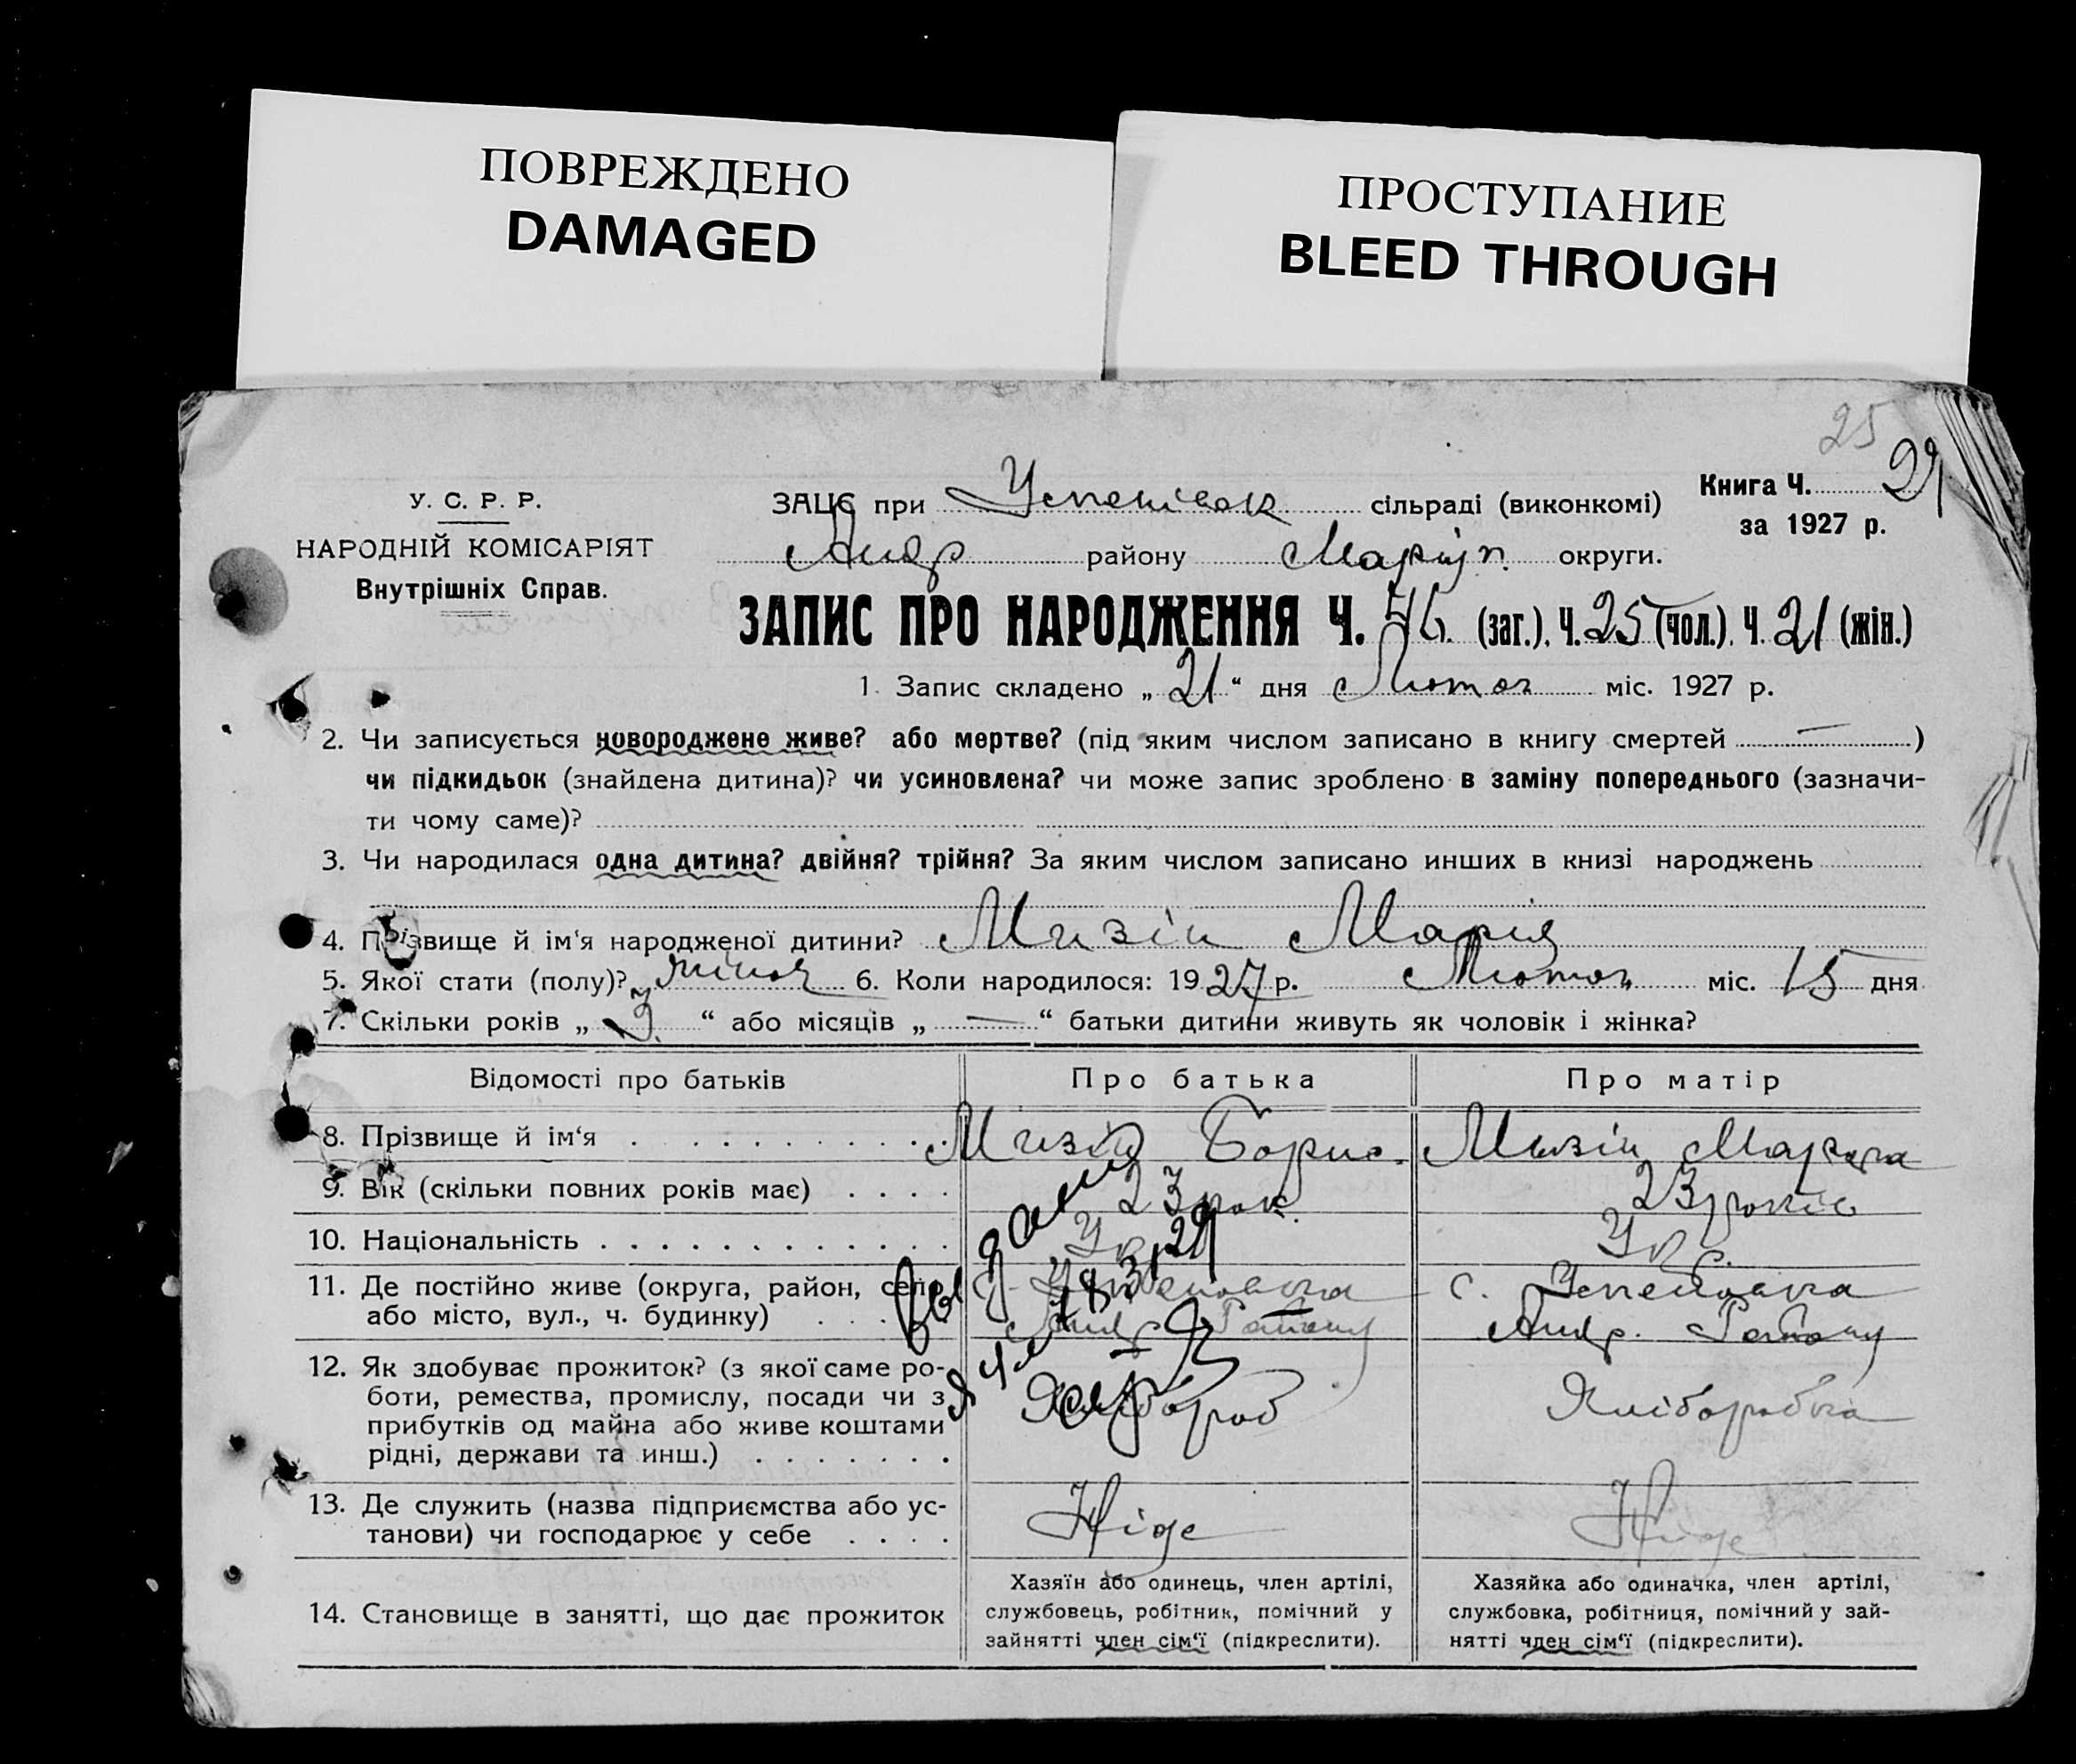 ПОВРЕЖДЕНО
DAMAGED
ПРОСТУПАНИЕ
BLEED THROUGH
25
У. С. Р. Р.
НАРОДНІЙ КОМІСАРІЯТ
Внутрішніх Справ.
ЗАЦС при Успенівск сільраді (виконкомі)
Андр району Маріуп. округи.
Книга Ч.
за 1927 р.
ЗАПИС ПРО НАРОДЖЕННЯ Ч. 46. (заг.), Ч. 25 (чол.), Ч. 21 (жін.)
1. Запис складено „ 21 “ дня Лютог міс. 1927 р.
2. Чи записується новороджене живе? або мертве? (під яким числом записано в книгу смертей — )
чи підкидьок (знайдена дитина)? чи усиновлена? чи може запис зроблено в заміну попереднього (зазначи-
ти чому саме)?
3. Чи народилася одна дитина? двійня? трійня? За яким числом записано инших в книзі народжень
4. Прізвище й ім'я народженої дитини? Мизін Марія
5. Якої стати (полу)? жіноч 6. Коли народилося: 1927 р. Лютог міс. 15 дня
7. Скільки років „ 3 “ або місяців „ — “ батьки дитини живуть як чоловік і жінка?
Відомості про батьків Про батька Про матір
8. Прізвище й ім‘я Мизін Борис. Мизін
9. Вік (скільки повних років має) 23 рок. 23 років
10. Національність Укр Укр.
11. Де постійно живе (округа, район, село с. Успеновка с. Успеновка
або місто, вул., ч. будинку) Андр Району Андр. Району
12. Як здобуває прожиток? (з якої саме ро-
боти, ремества, промислу, посади чи з Хлібороб Хліборобка
прибутків од майна або живе коштами
рідні, держави та инш.)
13. Де служить (назва підприємства або ус- Ніде Ніде
танови) чи господарює у себе
14. Становище в занятті, що дає прожиток
Хазяїн або одинець, член артілі,
службовець, робітник, помічний у
зайнятті член сім‘ї (підкреслити).
Хазяйка або одиначка, член артілі,
службовка, робітниця, помічний у зай-
нятті член сім‘ї (підкреслити).